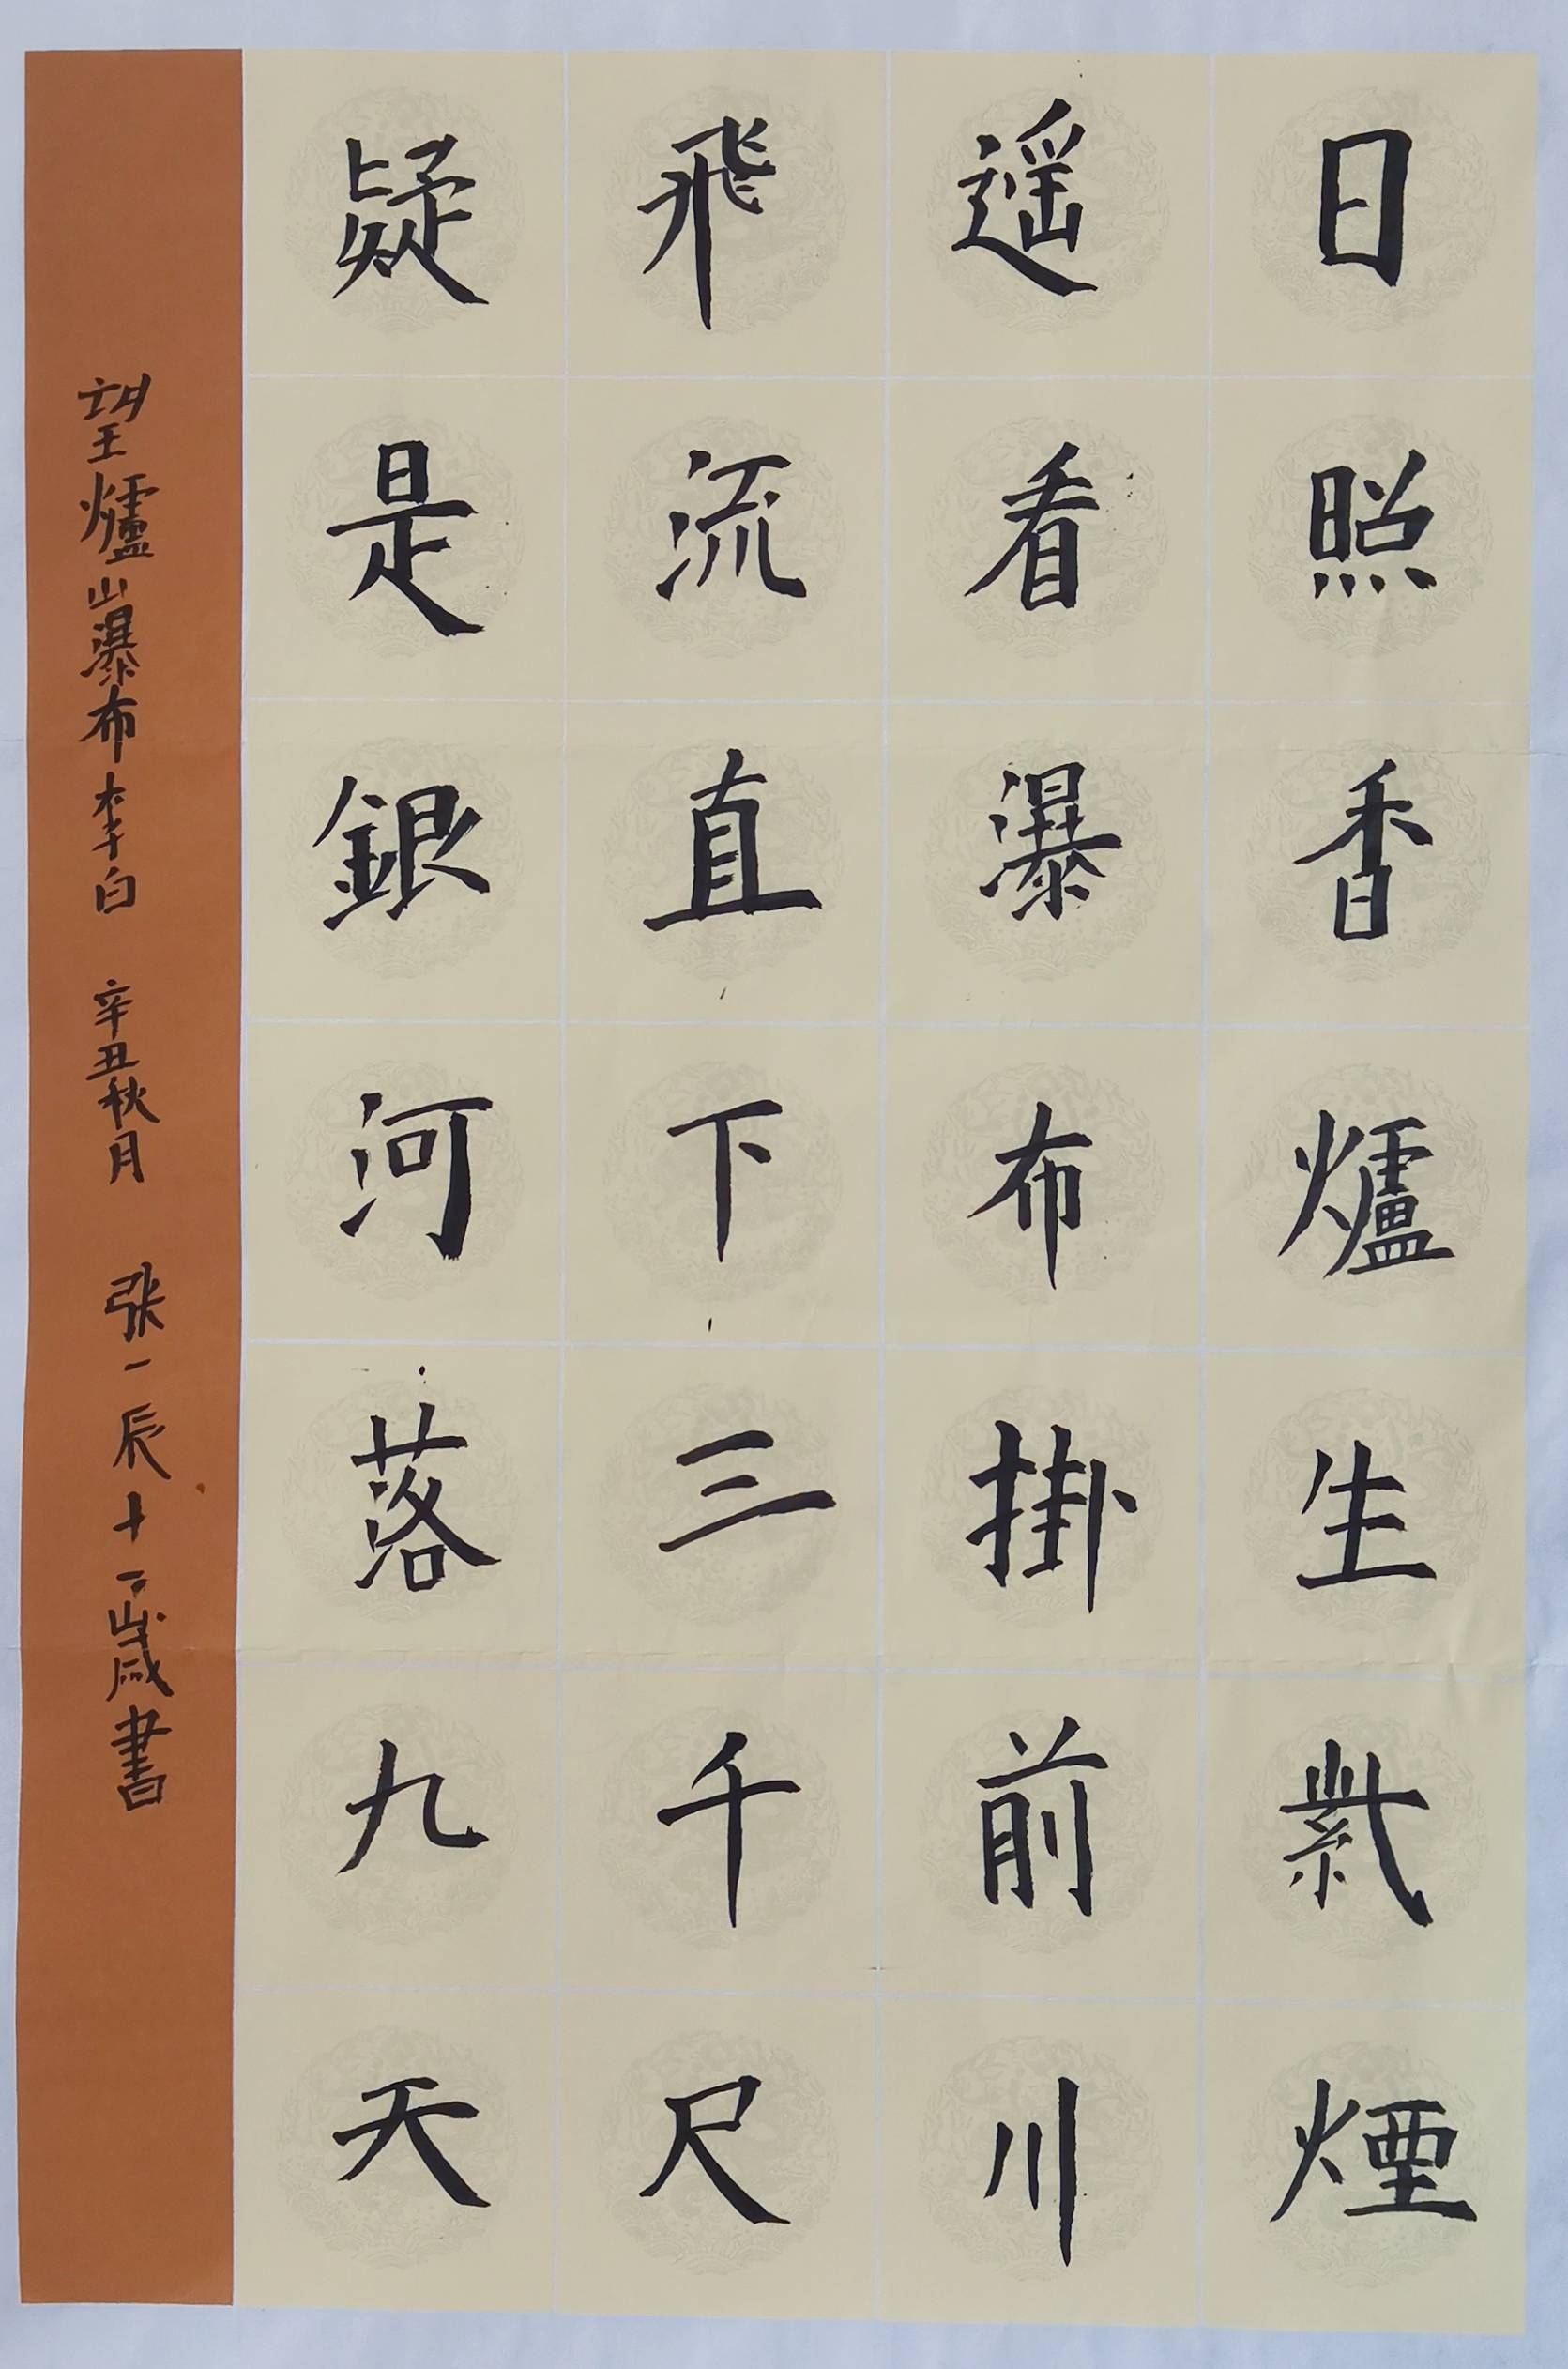 日照香爐生紫煙
遥看瀑布掛前川
飛流直下三千尺
疑是銀河落九天
望爐山瀑布李白 辛丑秋月 张一辰十一歲書